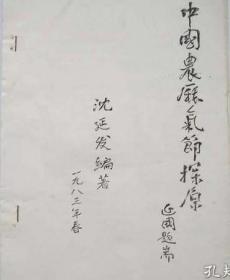 中國農厤氣節探原
正國题耑
沈延发編著
一九八三年春
孔夫